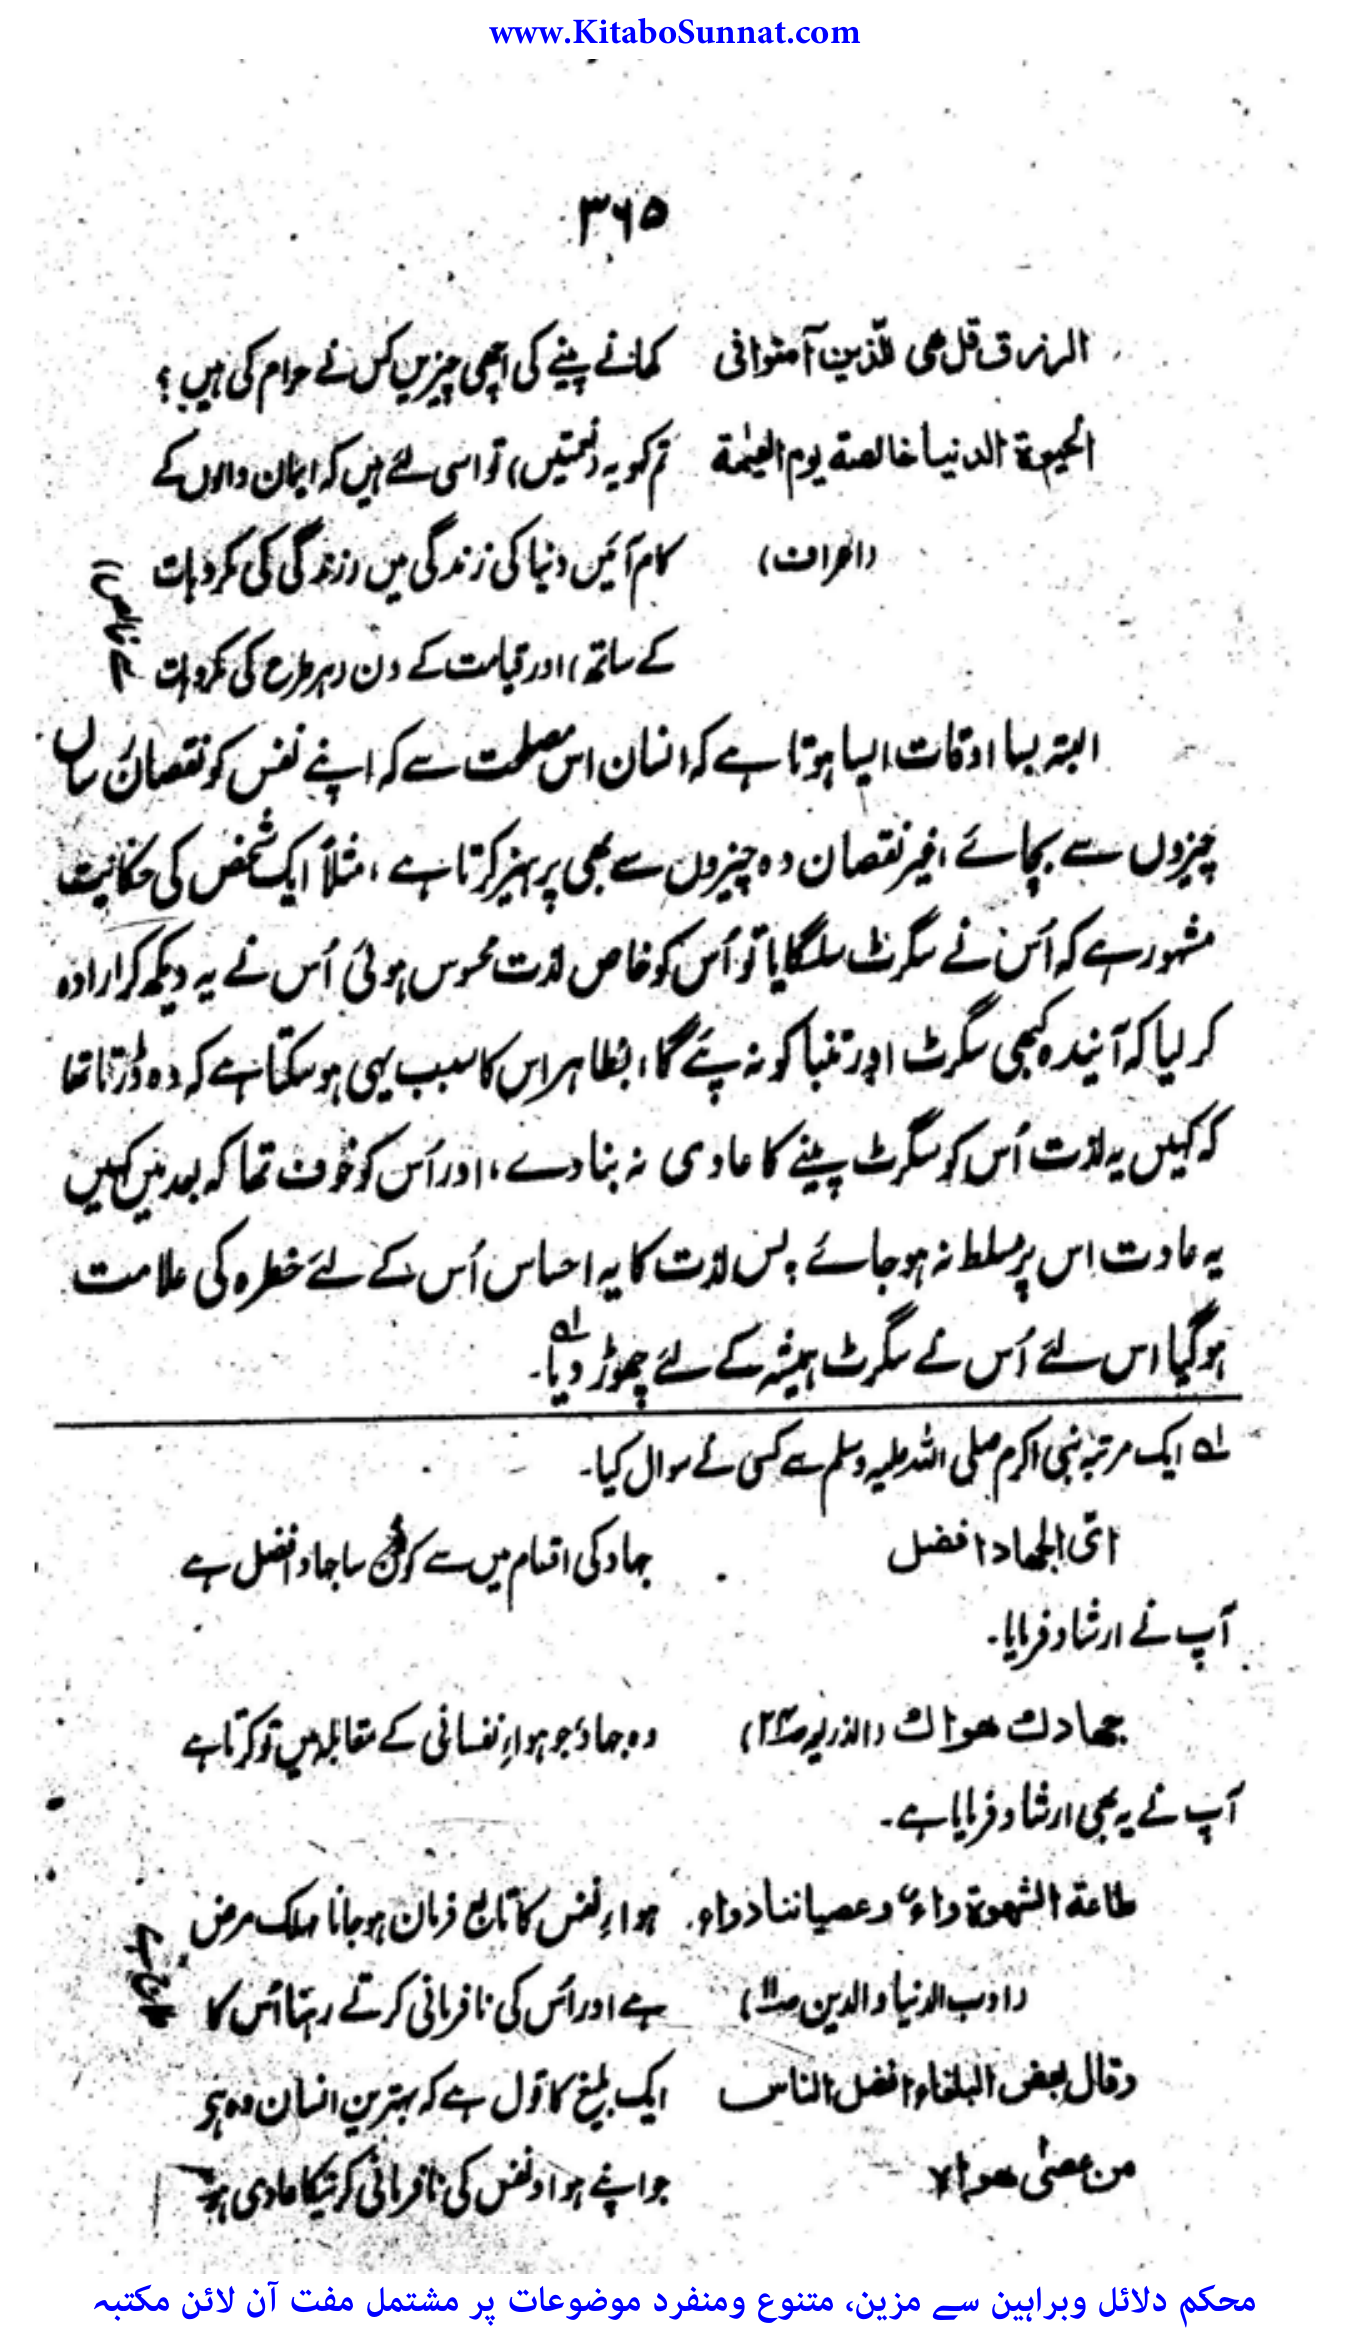 www.KitaboSunnat.com
۳۶۵
الرزق قل هی للذین آمنوا فی کھانے پینے کی اچھی چیزیں کس نے حرام کی ہیں؟
الحیوة الدنیا خالصة یوم القیٰمة تم کہو یہ (نعمتیں) تو اسی لئے ہیں کہ ایمان والوں کے
(اعراف) کام آئیں دنیا کی زندگی میں (زندگی کی مکروہات
کے ساتھ) اور قیامت کے دن (ہر طرح کی مکروہات
سے خالص)
البتہ بسا اوقات ایسا ہوتا ہے کہ انسان اس مصلحت سے کہ اپنے نفس کو نقصان رساں
چیزوں سے بچائے، غیر نقصان دہ چیزوں سے بھی پرہیز کرتا ہے، مثلاً ایک شخص کی حکایت
مشہور ہے کہ اُس نے سگرٹ سلگایا تو اُس کو خاص لذت محسوس ہوئی اُس نے یہ دیکھ کر ارادہ
کر لیا کہ آیندہ کبھی سگرٹ اور تمباکو نہ پئے گا، بظاہر اس کا سبب یہی ہو سکتا ہے کہ وہ ڈرتا تھا
کہ کہیں یہ لذت اُس کو سگرٹ پینے کا عادی نہ بنا دے، اور اُس کو خوف تھا کہ بعد میں کہیں
یہ عادت اس پر مسلط نہ ہو جائے پس لذت کا یہ احساس اُس کے لئے خطرہ کی علامت
ہو گیا اس لئے اُس نے سگرٹ ہمیشہ کے لئے چھوڑ دیا۔ لہ
لہ ایک مرتبہ نبی اکرم صلی اللہ علیہ وسلم سے کسی نے سوال کیا۔
ائّ الجهاد افضل جہاد کی اقسام میں سے کون سا جہاد افضل ہے
آپ نے ارشاد فرمایا۔
جهادك هواك (الذریعہ ص۲۴) وہ جہاد جو ہواءِ نفسانی کے مقابلہ میں تو کرتا ہے
آپ نے یہ بھی ارشاد فرمایا ہے۔
طاعة الشهوة داء وعصیانها دواء. ہواءِ نفس کا تابع فرمان ہو جانا مہلک مرض
(ادب الدنیا والدین ص۱۱) ہے اور اُس کی نافرمانی کرتے رہنا اُس کا
علاج ہے
وقال بعض البلغاء افضل الناس ایک بلیغ کا قول ہے کہ بہترین انسان وہ ہی
من عصیٰ هواه جو اپنے ہواء نفس کی نافرمانی کرنیکا عادی ہو
محکم دلائل وبراہین سے مزین، متنوع ومنفرد موضوعات پر مشتمل مفت آن لائن مکتبہ